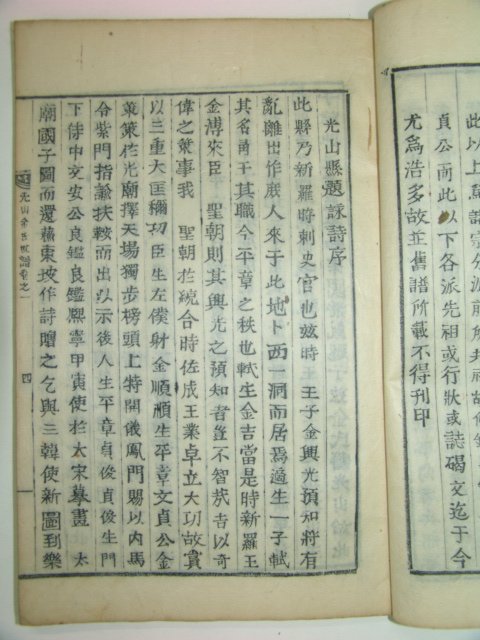 貞公而此以下各派先祖或行狀或誌碣文迄于今
尤爲浩多故並舊譜所載不得刊印
光山縣題詠詩序
此縣乃新羅時刺史官也玆時王王子金興光預知將有
亂離出作庶人來于此地卜西一洞而居焉適生一子軾
其名甫于其職今平章之秩也軾生金吉當是時新羅王
金溥來臣 聖朝則其興光之預知者豈不智哉吉以奇
偉之榮事我 聖朝於統合時佐成王業卓立大功故賞
以三重大匡稱功臣生左僕射金順順生平章文貞公金
策策於光廟擇天場獨步榜頭上特開儀鳳門賜以內馬
令紫門指諭扶鞍而出以示後人生平章貞俊貞俊生門
下侍中文安公良鑑良鑑熙寧甲寅使於太宋摹畫 太
廟國子圖而還蘇東坡作詩贈之乞與三韓使新圖到樂
光山金氏世譜卷之一
四